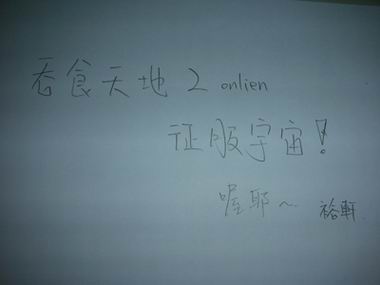 吞食天地 2 onlien
征服宇宙!
喔耶~ 裕軒